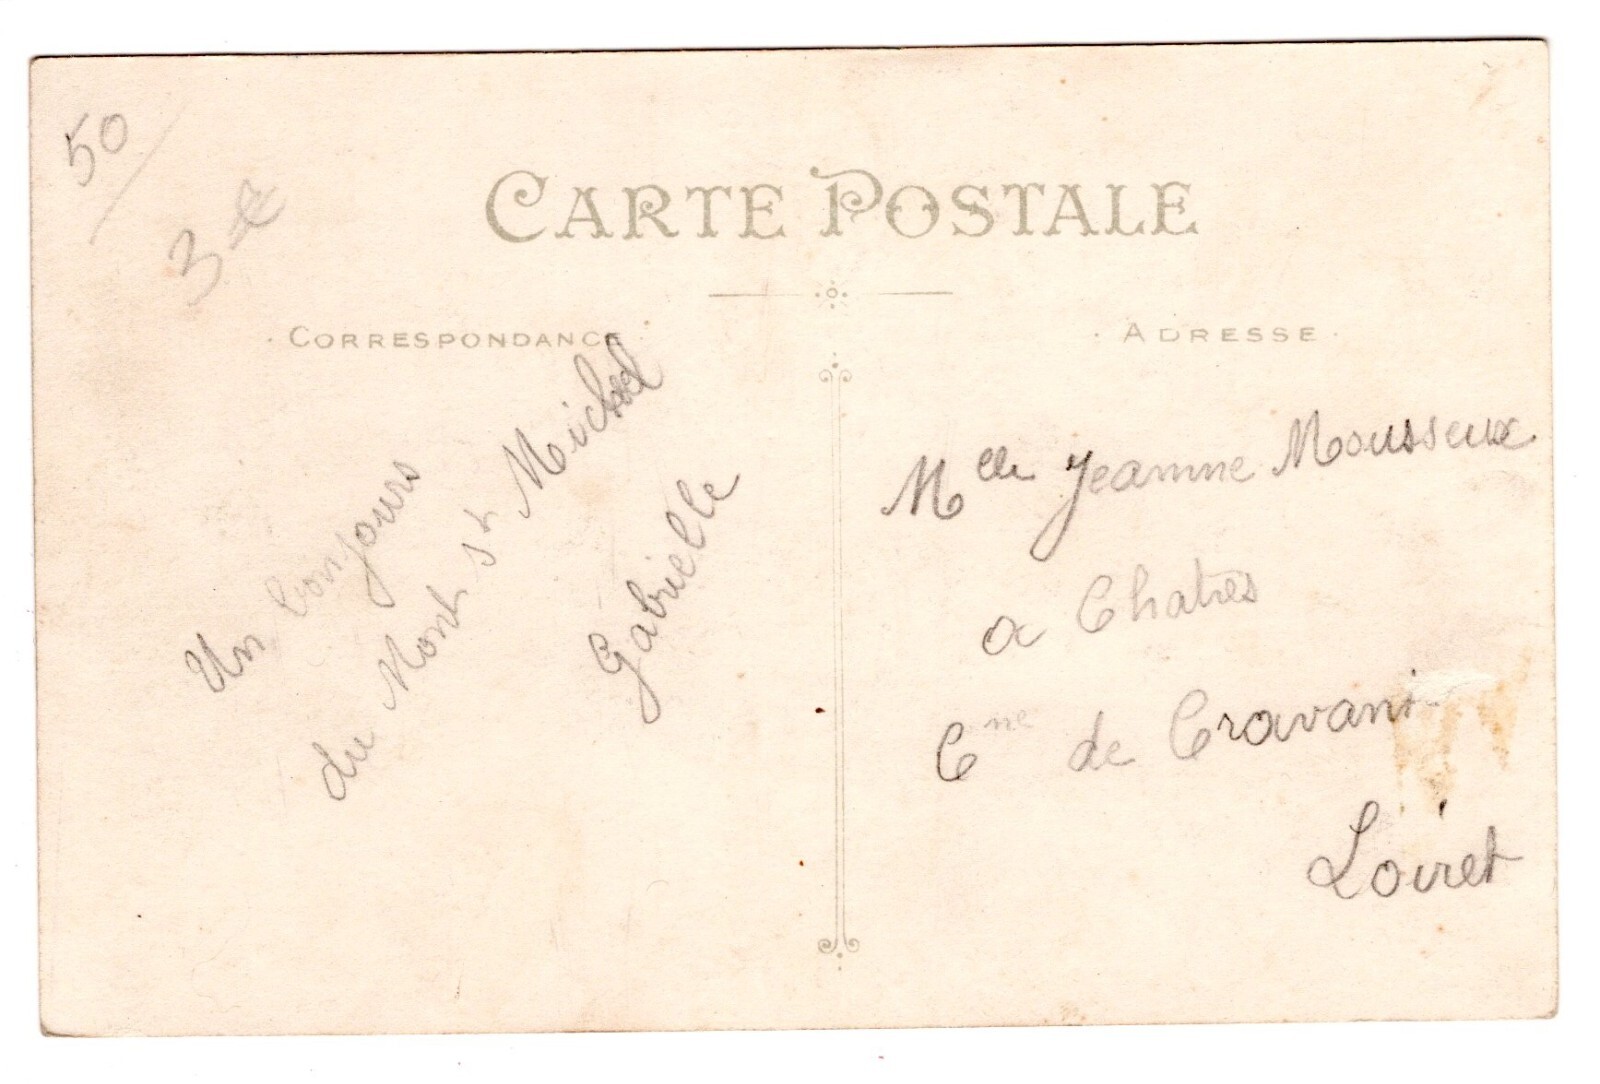 50/
3
CARTE POSTALE
CORRESPONDANCE
ADRESSE
Un bonjours
du Mont St Michel
Gabrielle
Melle Jeanne Mousseux
a Chatres
Cne de Cravant
Loiret